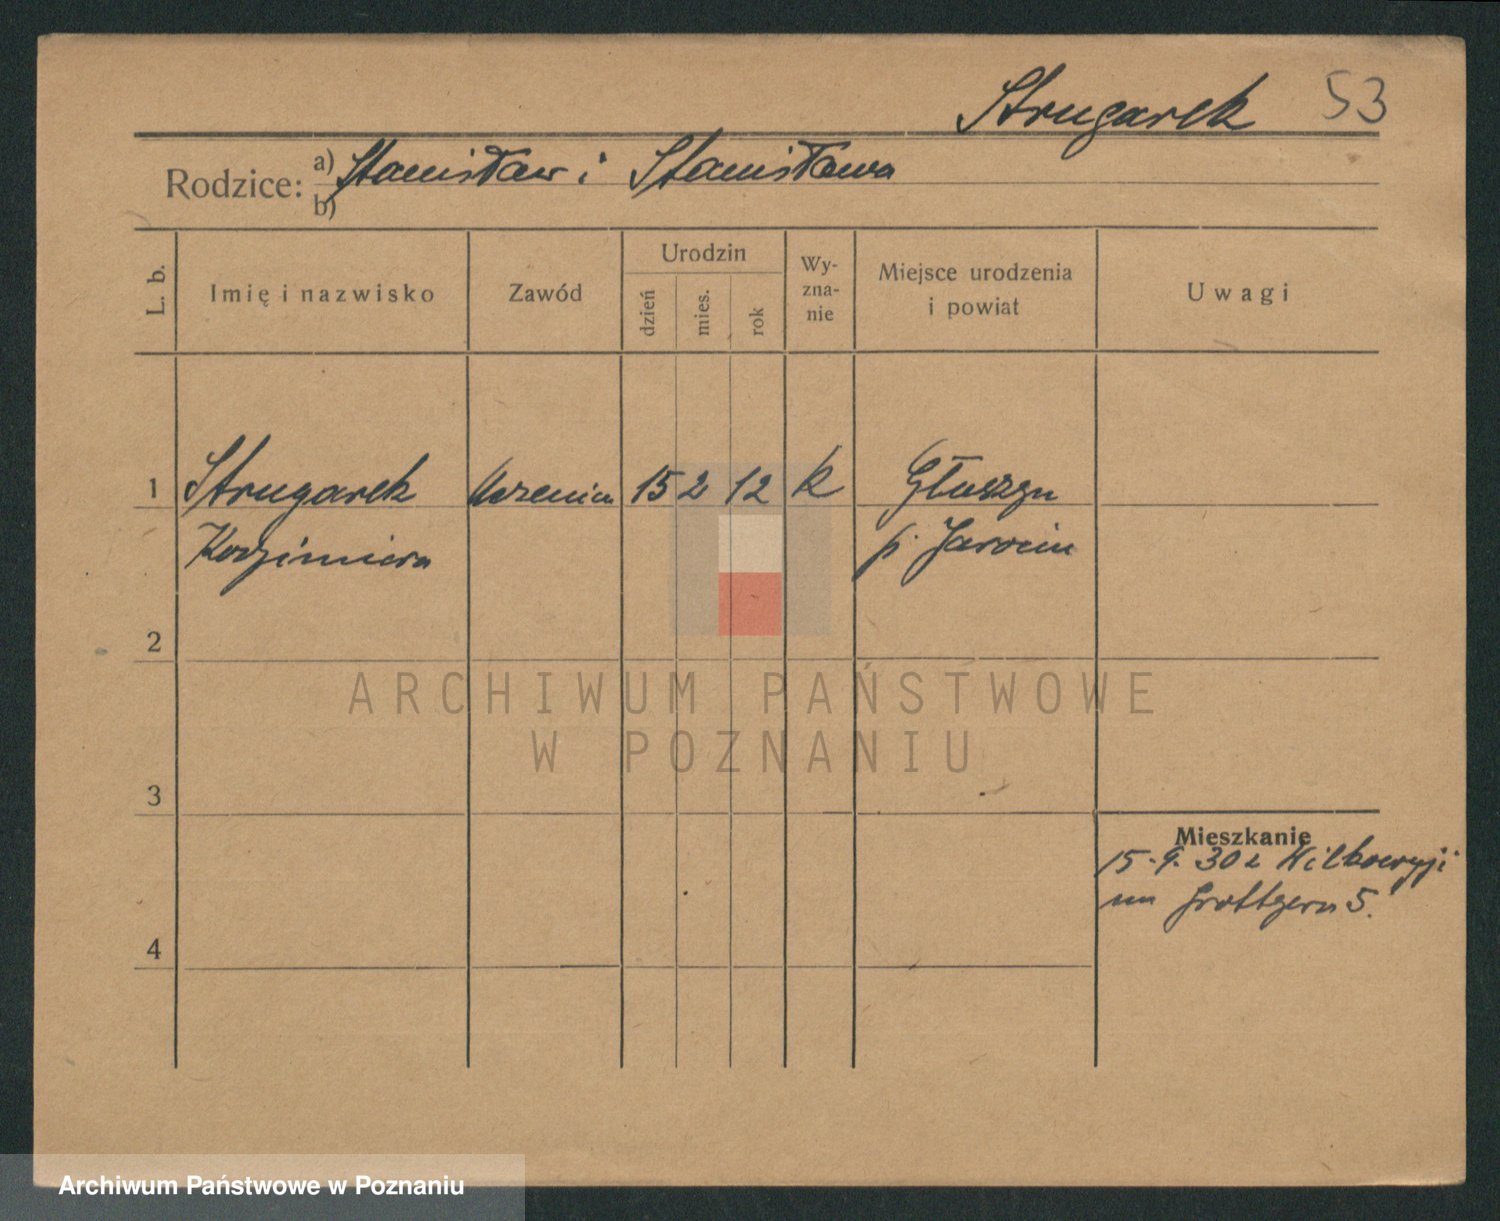 Strugarek 53
Rodzice: a) Stanisław i Stanisława
b)
L. b.
Imię i nazwisko
Zawód
Urodzin
dzień
mies.
rok
Wy-
zna-
nie
Miejsce urodzenia
i powiat
Uwagi
1 Strugarek uczenica 15 2 12 k
Kazimiera p. Jarocin
2
ARCHIWUM PAŃSTWOWE
W POZNANIU
3
Mieszkanie
15.9.30 z Wilkowyji
na Grottgera 5.
4
Archiwum Państwowe w Poznaniu